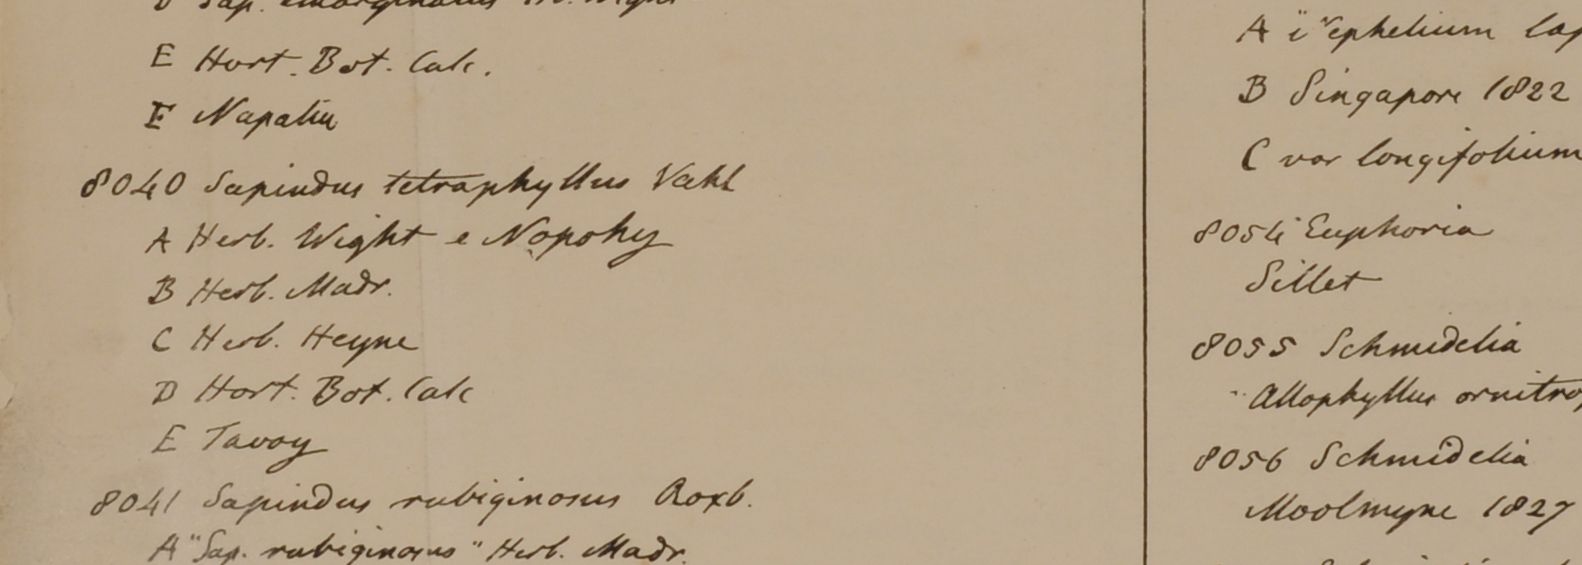 D Sap. emarginatus H. Wight
E Hort. Bot. Calc.
F Napalia
8040 Sapindus tetraphyllus Vahl
A Herb. Wight e Nopohy
B Herb. Madr.
C Herb. Heyne
D Hort. Bot. Calc
E Tavoy
8041 Sapindus rubiginosus Roxb.
A "Sap. rubiginosus" Herb. Madr.
A "Nephelium lap
B Singapore 1822
C var longifolium
8054 Euphoria
Sillet
8055 Schmidelia
Allophyllus ornitro
8056 Schmidelia
Moolmyne 1827